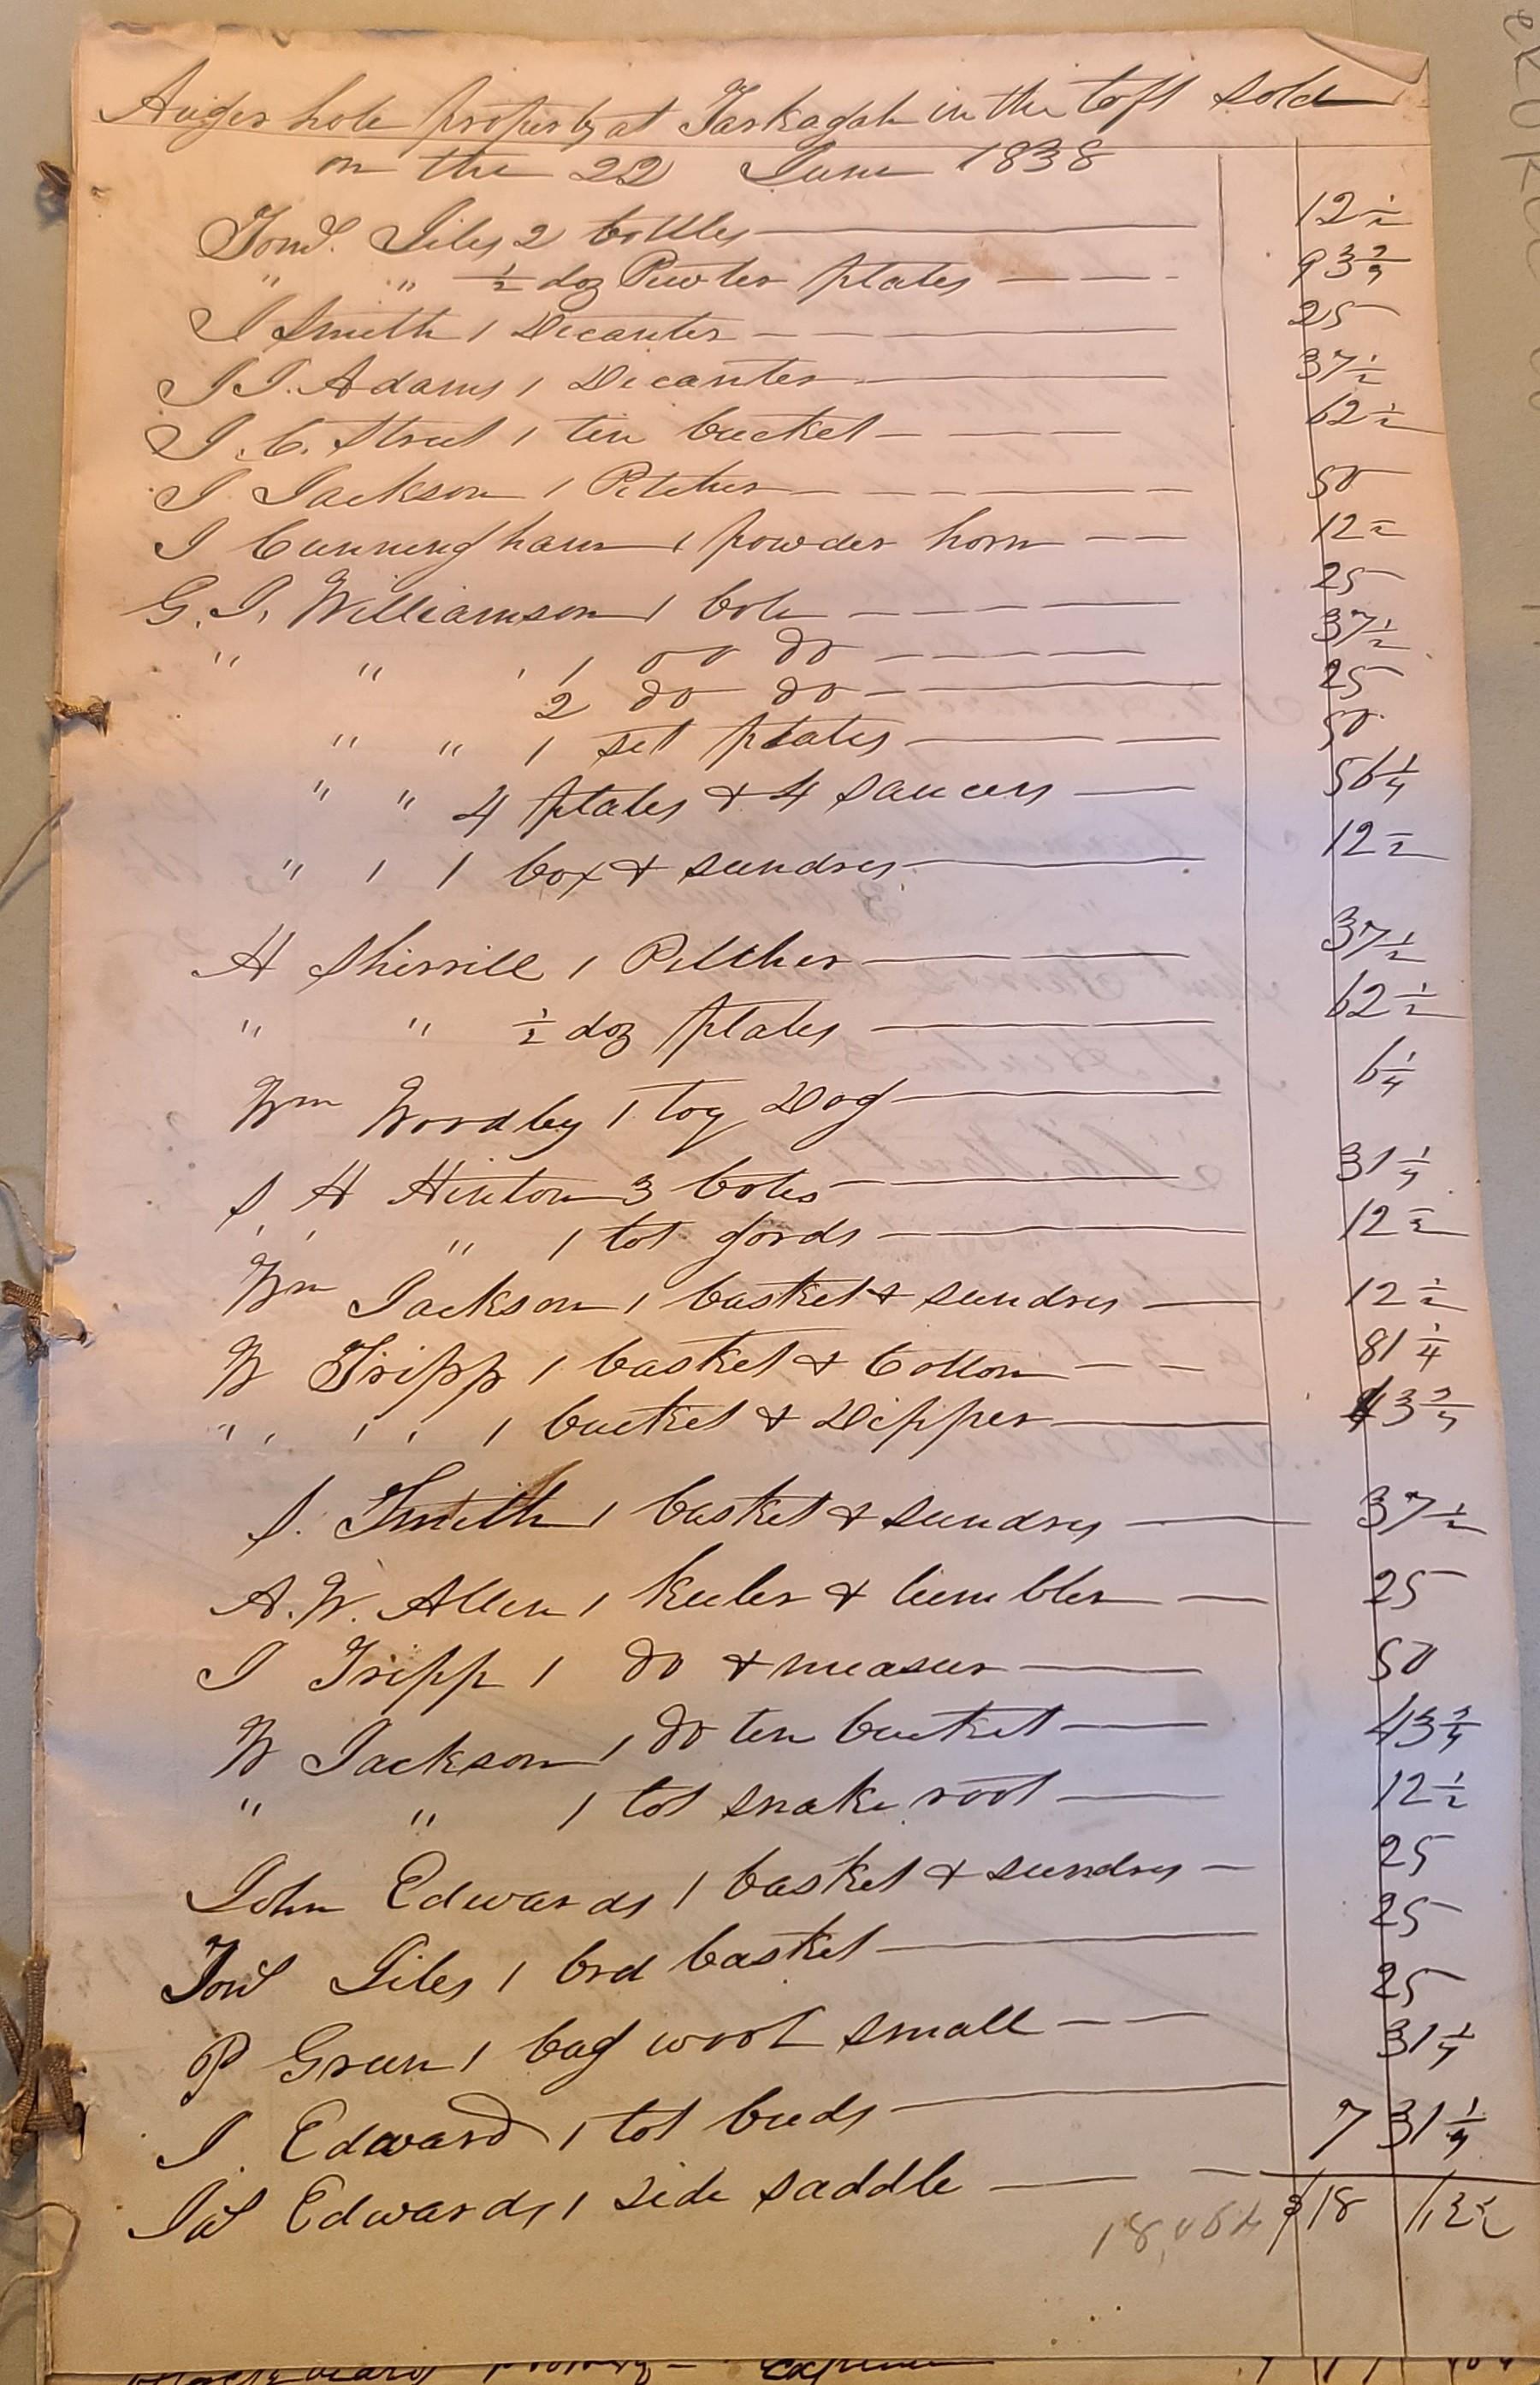 Auger hole property at Taskagah in the loft sold
on the 22 June 1838
Jonl. Liles 2 bottles 12 1/2
" " 1/2 doz Pewter plates 93 3/4
J Smith 1 Decanter 25
J J. Adams 1 Decanter 37 1/2
J. C. Street 1 tin bucket 62 1/2
J Jackson 1 Pitcher 50
J Cunningham 1 powder horn 12 1/2
G. J. Williamson 1 bole 25
" " 1 do do 37 1/2
2 do do 25
" " 1 set plates 50
" " 4 plates & 4 saucers 56 1/4
" 1 1 box & sundres 12 1/2
H Sherrill 1 Pitcher 37 1/2
" " 1/2 doz plates 62 1/2
Wm Woodby 1 toy Dog 6 1/4
S H Hinton 3 boles 31 1/4
" " 1 lot gords 12 1/2
Wm Jackson 1 basket & sundres 12 1/2
W Tripp 1 basket & Cotton 81 1/4
" " 1 bucket & Dipper 43 3/4
S. Smith 1 basket & sundres 37 1/2
A. W. Allen 1 keeler & tumbler 25
J Tripp 1 do & measur 50
W Jackson 1 do tin bucket 43 3/4
" " 1 lot snake root 12 1/2
John Edwards 1 basket & sundres 25
Jonl Liles 1 brd basket 25
P Green 1 bag wool small 25
J. Edward 1 lot beeds 31 1/4
Jas Edwards 1 side saddle 7 31 1/4
$18